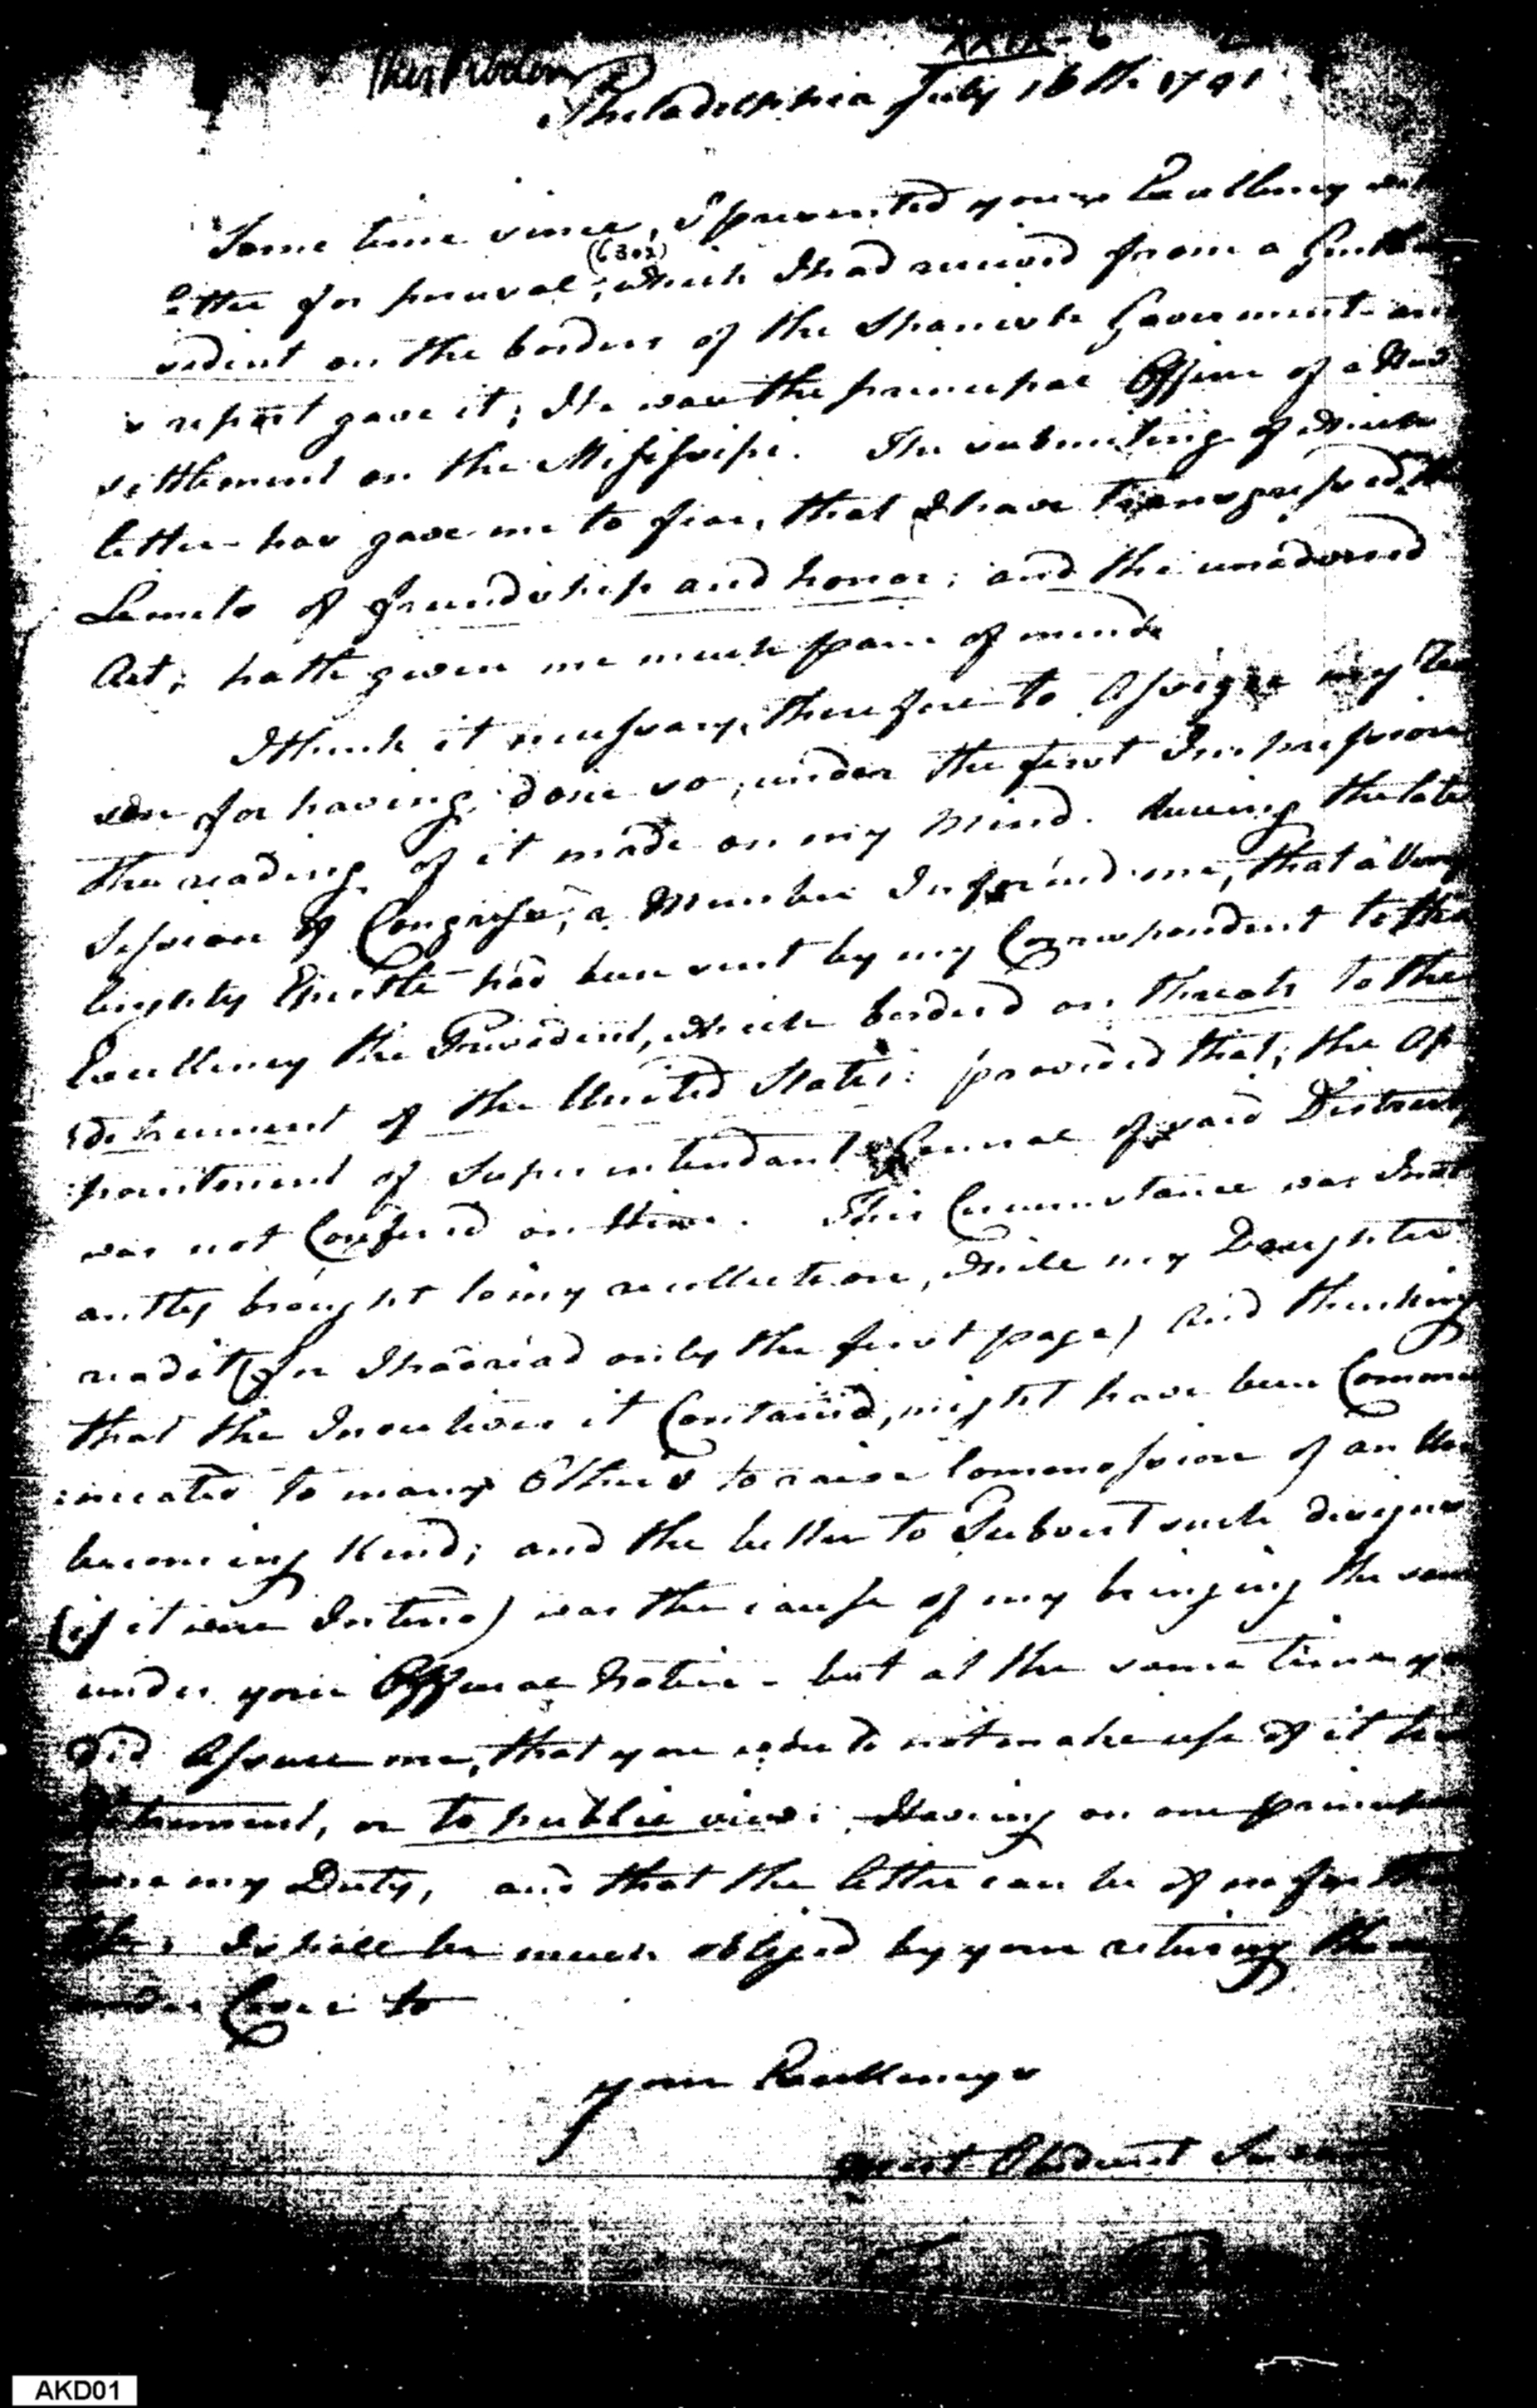 XXIX-6
Philadelphia July 16th 1791
Some time since, I presented your Excellency
letter for perusal, which I had received from a
(6302)
sedent on the borders of the Spaniesh Goverment
report gave it; He was the principal Officer of a
settlement on the Missisipi. The submiting of which
letter has gave me to fear, that I have transgressed
Limits of friendship and honor; and the unadvised
Act, hath given me much pain of minde
I think it nessesary, therefore to Assigne my
son for having done so, under the first Impression
the reading of it made on my Mind. During the late
Session of Congress, a Member Informd me, that a Very
lenghty Epistle had been sent by my Correspondent to
Excellency the President, which borderd on threats to the
detrement of the United States: provided that, the Ap
pointment of Superintendant General of said District
was not Conferrd on Him. This Circumstance was Inst
antly brought to my recollection, while my Daughter
read it (for I had read only the first page) and thinking
that the Incentives it Containd, might have been Commu
nicated to many Others to raise Commossion of an Un
becoming Kind; and the better to Subvert such designs
(if it were Intend) was the cause of my bringing the same
under your Official Notice - but at the same time
did Assure me, that you would not make use of it
or to public view: Having on one
my Duty, and that the letter can be of no further
I shall be much obliged by your returing
under Cover to
your Excellencys
most Obedient
AKD01